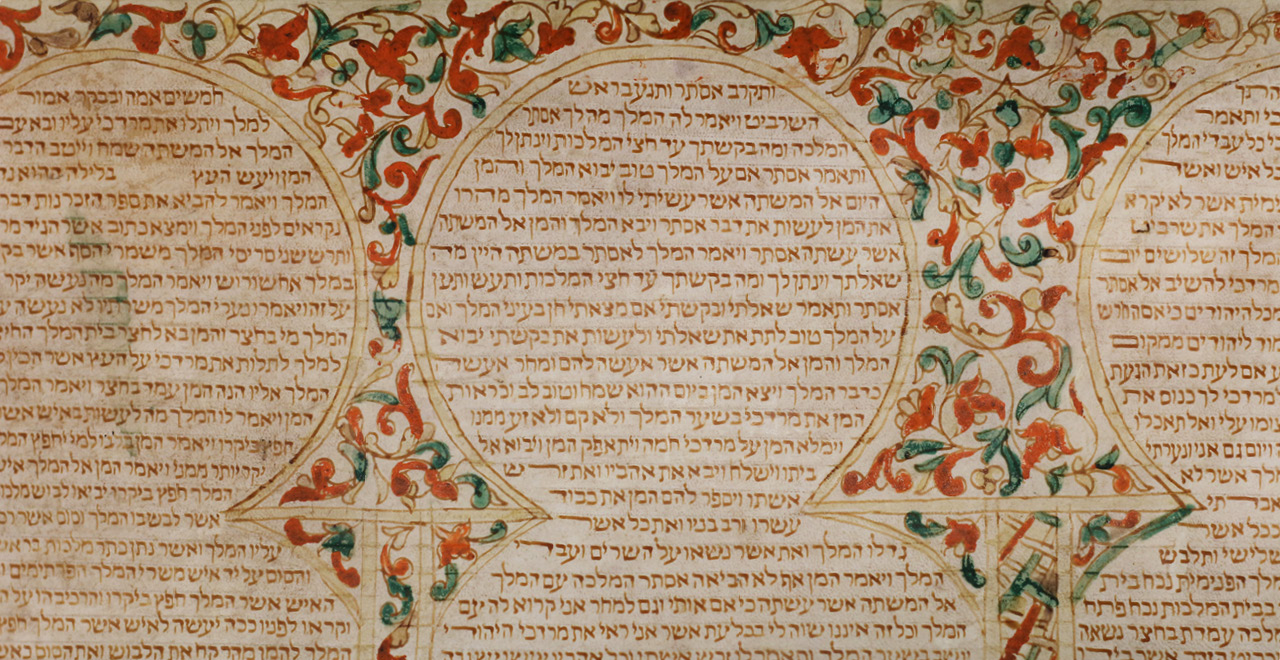 ותאמר
כל עבדי המלך
כל איש ואשר
אשר לא יקרא
המלך את שרביט
זה שלושים יום
מרדכי להשיב אל אסתר
מכל היהודים כי אם החרש
ליהודים ממקום
אם לעת כזאת הגעת
מרדכי לך כנוס את
עלי ואל תאכלו
ויום גם אני ונערתי
המלך אשר לא
כל אשר
שלישי ותלבש
המלך הפנימית נכח בית
בבית המלכות נכח פתח
המלכה עמדת בחצר נשאה
ותקרב אסתר ותגע בראש
השרביט ויאמר לה המלך מה לך אסתר
המלכה ומה בקשתך עד חצי המלכות וינתן לך
ותאמר אסתר אם על המלך טוב יבוא המלך והמן
היום אל המשתה אשר עשיתי לו ויאמר המלך מהרו
את המן לעשות את דבר אסתר ויבא המלך והמן אל המשתה
אשר עשתה אסתר ויאמר המלך לאסתר במשתה היין מה
שאלתך וינתן לך ומה בקשתך עד חצי המלכות ותעש ותען
אסתר ותאמר שאלתי ובקשתי אם מצאתי חן בעיני המלך ואם
על המלך טוב לתת את שאלתי ולעשות את בקשתי יבוא
המלך והמן אל המשתה אשר אעשה להם ומחר אעשה
כדבר המלך ויצא המן ביום ההוא שמח וטוב לב וכראות
המן את מרדכי בשער המלך ולא קם ולא זע ממנו
וימלא המן על מרדכי חמה ויתאפק המן ויבוא אל
ביתו וישלח ויבא את אהביו ואת זרש
אשתו ויספר להם המן את כבוד
עשרו ורב בניו ואת כל אשר
גדלו המלך ואת אשר נשאו על השרים ועבדי
המלך ויאמר המן אף לא הביאה אסתר המלכה עם המלך
אל המשתה אשר עשתה כי אם אותי וגם למחר אני קרוא לה עם
המלך וכל זה איננו שוה לי בכל עת אשר אני ראה את מרדכי היהודי
חמשים אמה ובבקר אמור
למלך ויתלו את מרדכי עליו ובא עם
המלך אל המשתה שמח וייטב הדבר
המן ויעש העץ בלילה ההוא נדדה
המלך ויאמר להביא את ספר הזכרנות דברי
נקראים לפני המלך וימצא כתוב אשר הגיד מרדכי
ותרש שני סריסי המלך משמרי הסף אשר בקשו
במלך אחשורוש ויאמר המלך מה נעשה יקר
על זה ויאמרו נערי המלך משרתיו לא נעשה
המלך מי בחצר והמן בא לחצר בית המלך החיצונה
למלך לתלות את מרדכי על העץ אשר הכין לו
המלך אליו הנה המן עמד בחצר ויאמר המלך
המן ויאמר לו המלך מה לעשות באיש אשר
חפץ ביקרו ויאמר המן בלבו למי יחפץ המלך
יקר יותר ממני ויאמר המן אל המלך איש
המלך חפץ ביקרו יביאו לבוש מלכות
אשר לבש בו המלך וסוס אשר רכב
עליו המלך ואשר נתן כתר מלכות בראשו
והסוס על יד איש משרי המלך הפרתמים
האיש אשר המלך חפץ ביקרו והרכיבהו על
וקראו לפניו ככה יעשה לאיש אשר המלך חפץ
המלך להמן מהר קח את הלבוש ואת הסוס כאשר